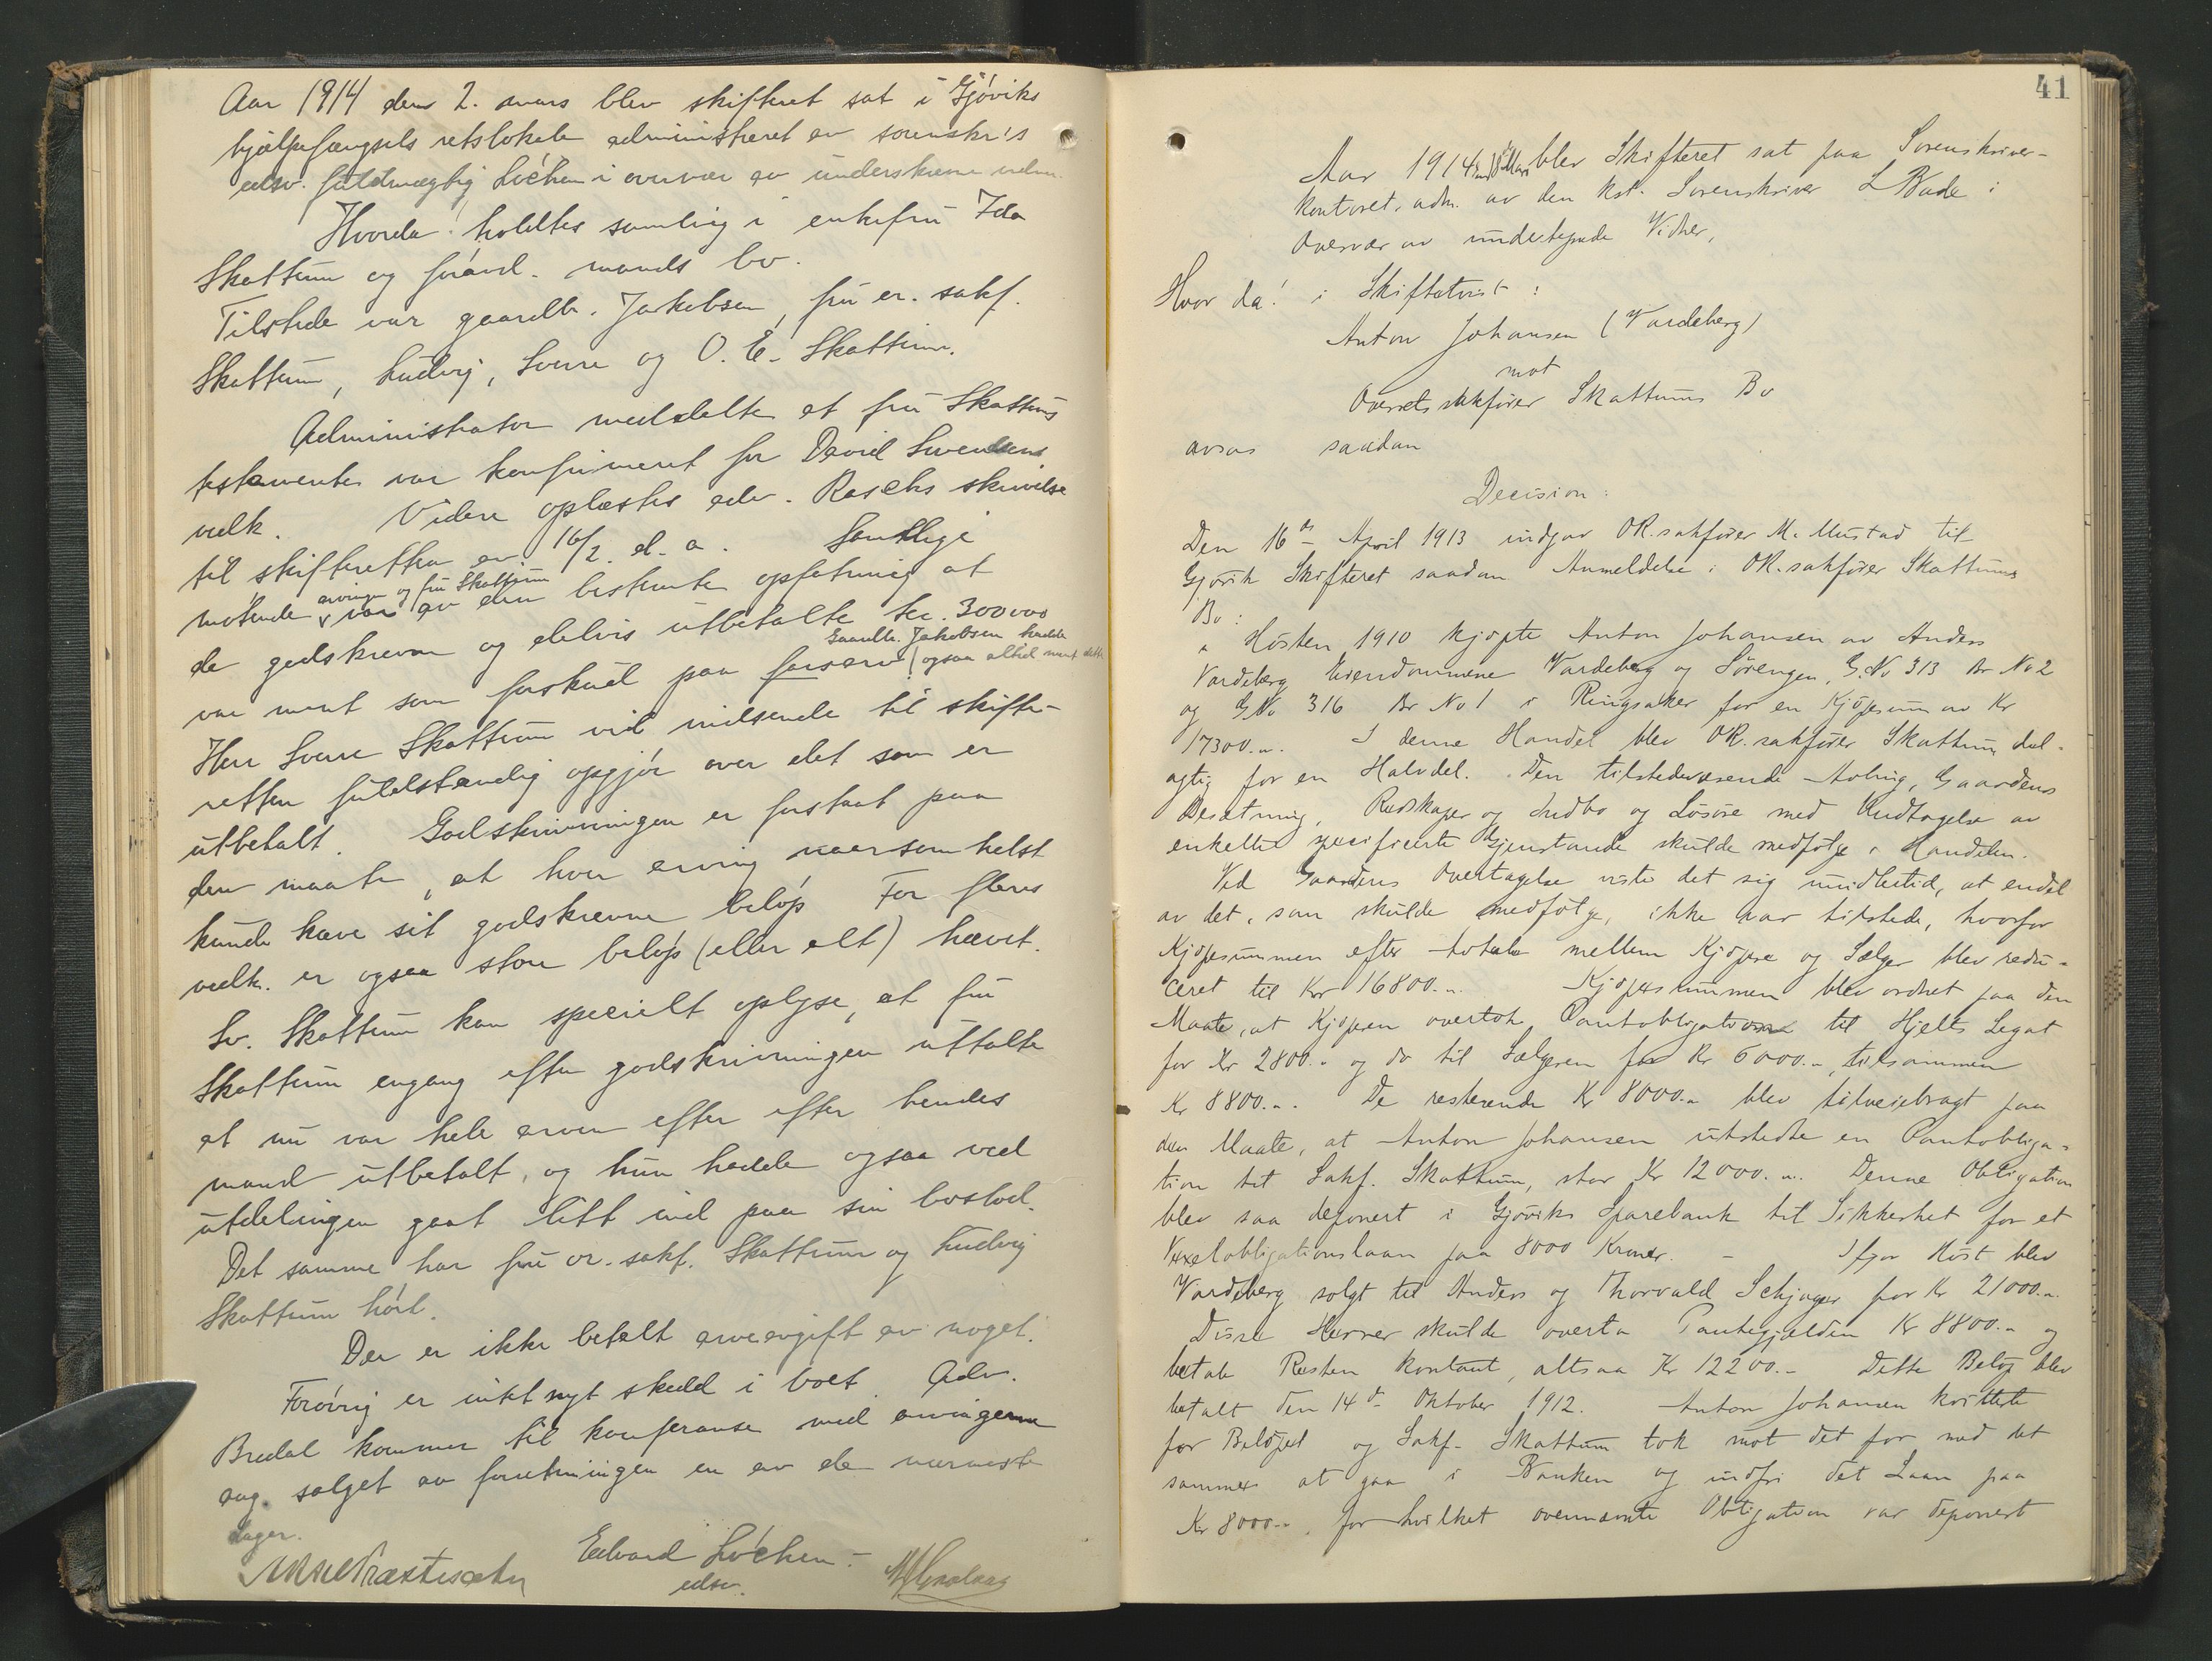 Aar 1914 den 2. mars blev skifteret sat i Gjøviks
hjælpefængsels retslokale administreret av sorenskr's
edsv. fuldmægtig Lóchen i overvær av underskrevne vidner.
Hvorda! holdtes samling i enkefru Ida
Skattum og forávd. mands bo.
Tilstede var gaardbr. Jakobsen, fru er. sakf.
Skattum, Ludvig, Sverre og O. E. Skattum.
Administrator meddelte at fru Skattums
testamente var konfirmeret for David Svendsens
vedk. Videre oplæstes adv. Raschs skrivelse
til skifteretten av 16/2 d. a. Samtlige
møtende arvinger og fru Skattum var av den bestemte opfatning at
de godskrevne og delvis utbetalte kr. 300000
var ment som forskud paa farsarv (Gaardbr. Jakobsen hadde ogsaa altid ment dette
Herr Sverre Skattum vil indsende til skifte-
retten fuldstændig opgjør over det som er
utbetalt. Godskrivningen er forstaat paa
den maate, at hver arving naarsomhelst
kunde hæve sit godskrevne beløp. For fleres
vedk. er ogsaa store beløp (eller alt) hævet.
Sv. Skattum kan specielt oplyse, at fru
Skattum engang efter godskrivningen uttalte
at nu var hele arven efter efter hendes
mand utbetalt, og hun hadde ogsaa ved
utdelingen gaat litt ind paa sin boslod.
Det samme har fru or. sakf. Skattum og Ludvig
Skattum hørt.
Der er ikke betalt arveavgift av noget.
Forøvrig er intet nyt skedd i boet. Adv.
Bredal kommer til konferanse med arvingerne
ang. salget av forretningen en av de nærmeste
dager.
Edvard Lóchen
edsv.
41
Aar 1914 blev Skifteret sat paa Sorenskriver-
kontoret, adm. av den kst. Sorenskriver L Bade i
Overvær av undertegnede Vidner,
Hvor da! i Skiftetvist:
Anton Johansen (Vardeberg)
mot
Overretssakfører Skattums Bo
avsas saadan
Decision:
Den 16de April 1913 indgav OR.sakfører M. Mustad til
Gjøvik Skifteret saadan Anmeldelse i OR.sakfører Skattums
Bo:
"Høsten 1910 kjøpte Anton Johansen av Anders
Vardeberg Eiendommene Vardeberg og Sørengen, G.No 313 Br No 2
og GNo 316 Br No 1 i Ringsaker for en Kjøpesum av Kr
17300.-. I denne Handel blev OR.sakfører Skattum del-
agtig for en Halvdel. Den tilstedeværende Avling, Gaardens
Besetning, Redskaper og Indbo og Løsøre med Undtagelse av
enkelte specificerte Gjenstande skulde medfølge i Handelen.
Ved Gaardens Overtagelse viste det sig imidlertid, at endel
av det, som skulde medfølge, ikke var tilstede, hvorfor
Kjøpesummen efter Avtale mellem Kjøpere og Sælger blev redu-
ceret til Kr 16800.-. Kjøpesummen blev ordnet paa den
Maate, at Kjøperen overtok Pantobligation til Hjelts Legat
for Kr 2800.- og do til Sælgeren for Kr 6000.-, tilsammen
Kr 8800.-. De resterende Kr 8000.- blev tilveiebragt paa
den Maate, at Anton Johansen utstedte en Pantobliga-
tion til Sakf. Skattum, stor Kr 12000.-. Denne Obligation
blev saa deponert i Gjøviks Sparebank til Sikkerhet for et
Vexelobligationslaan paa 8000 Kroner. - Ifjor Høst blev
Vardeberg solgt til Anders og Thorvald Schjager for Kr 21000.-.
Disse Herrer skulde overta Pantegjælden Kr 8800.- og
betale Resten kontant, altsaa Kr 12200.- Dette Beløp blev
betalt den 14de Oktober 1912. Anton Johansen kvitterte
for Beløpet og Sakf. Skattum tok mot det for med det
samme at gaa i Banken og indfri det Laan paa
Kr 8000.-, for hvilket ovennævnte Obligation var deponert